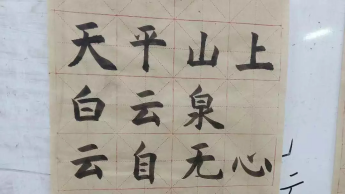 天平山上
白云泉
云自无心